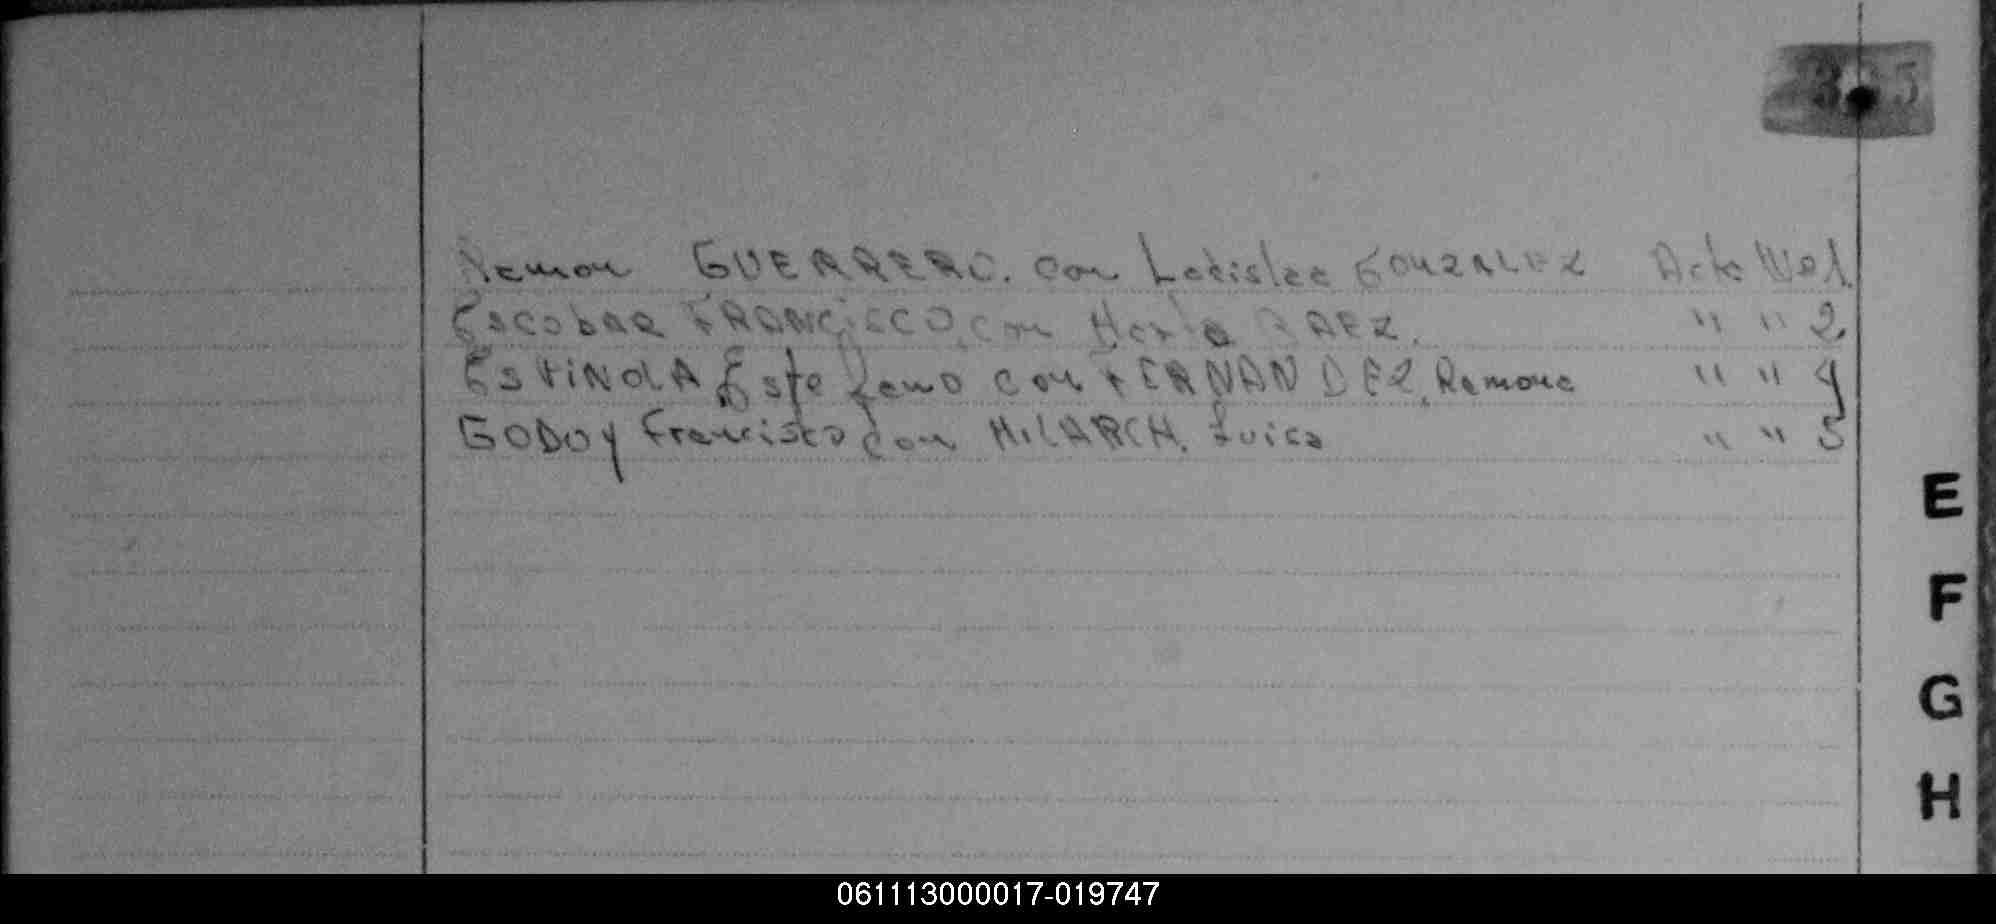 Ramon GUERRERO. con Ladislaa GONZALEZ Acta Nº 1.
Escobar FRANCISCO con BAEZ. " " 2
ESTINOLA con FERNANDEZ, Ramona " " 4
GODOY Francisco con Luisa " " 5
E
F
G
H
061113000017-019747